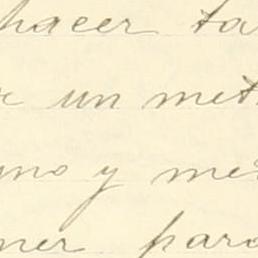 hacer ta
un met
uno y me
ner para